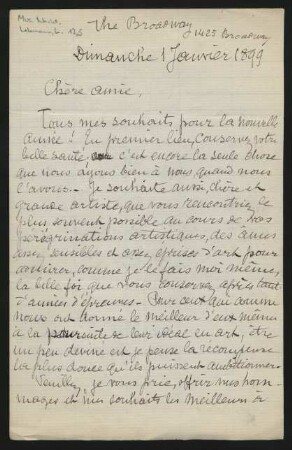 The Broadway
1425 Broadway
Dimanche 1 Janvier 1899
Chère amie,
Tous mes souhaits pour la nouvelle
année! En premier lieu, conservez votre
belle santé, c'est encore la seule chose
que nous ayons bien à nous, quand nous
l'avons. Je souhaite aussi, chère et
grande artiste, que vous rencontriez le
plus souvent possible au cours de vos
pérégrinations artistiques, des âmes
assez sensibles et assez éprises d'art pour
admirer, comme je le fais moi même,
la belle foi que vous conservez après tant
d'années d'épreuves. Pour ceux qui comme
nous ont donné le meilleur d'eux mêmes
à la poursuite de leur idéal en art, être
un peu deviné est je pense la récompense
la plus douce qu'ils puissent ambitionner.
Veuillez, je vous prie, offrir mes hom-
mages et mes souhaits les meilleurs à